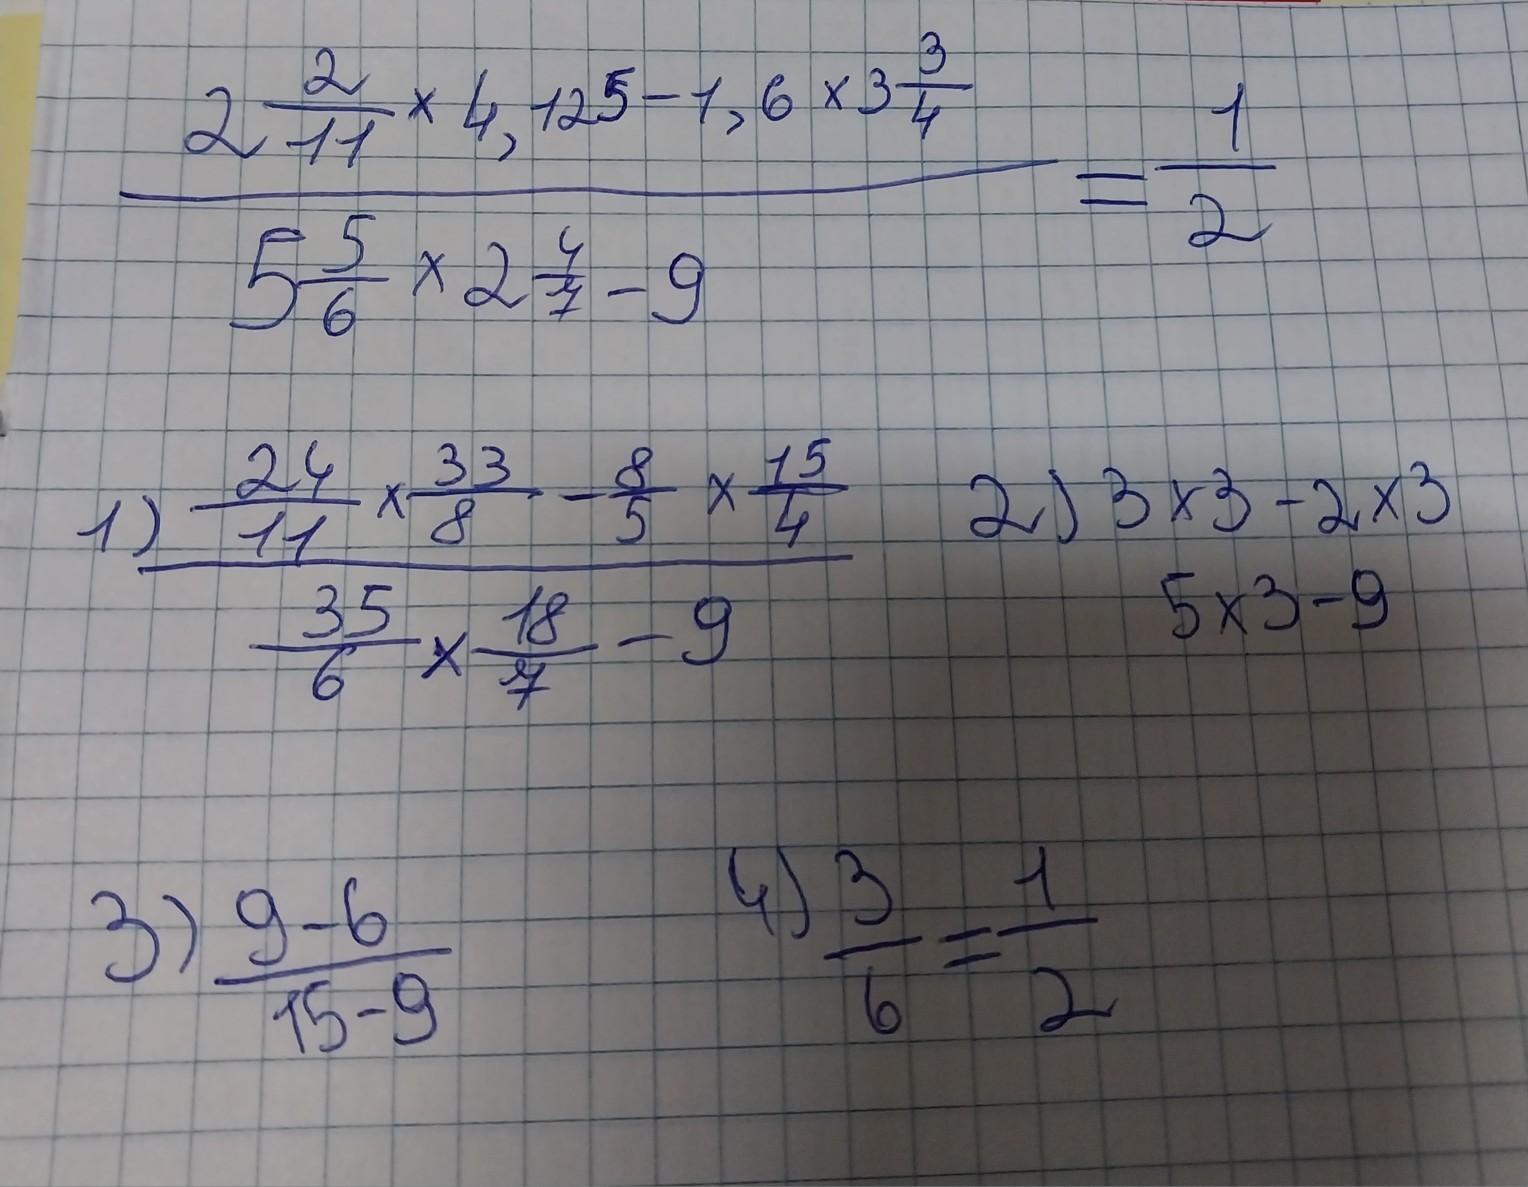 2 2/11 × 4,125 - 1,6 × 3 3/4
5 5/6 × 2 4/7 - 9
= 1/2
1) 24/11 × 33/8 - 8/5 × 15/4
35/6 × 18/7 - 9
2) 3 × 3 - 2 × 3
5 × 3 - 9
3) 9 - 6
15 - 9
4) 3/6 = 1/2